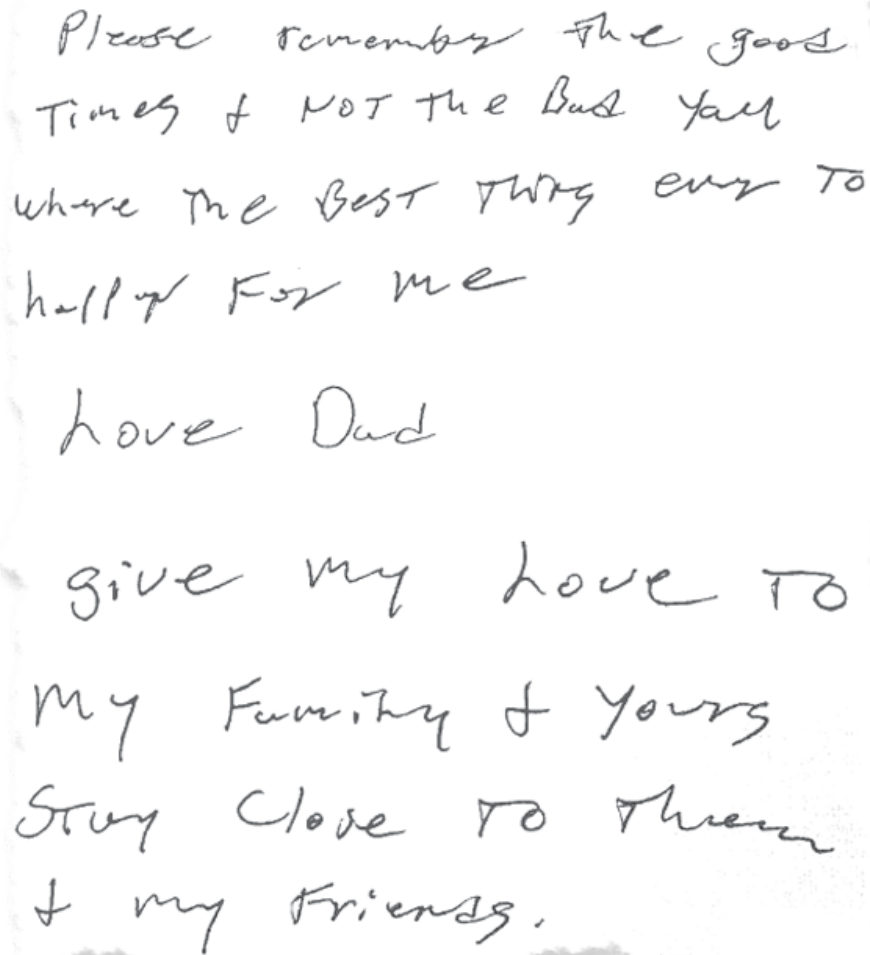 Please remember the good
Times & NOT The Bad Yall
where The BEST Thing ever To
happen For me
Love Dad
give my Love To
My Family & Yours
Stay Close To Them
& my Friends.